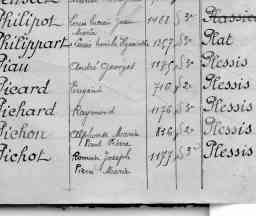 Philipot Louis Lucien Jean 1468 §3e Plassier
Marie
Philippart Louis Emile Hyacinthe 1257 §3e Plat
Piau André Georges 1175 §3e Plessis
Picard 710 §2e Plessis
Pichard Raymond 1176 §3e Plessis
Pichon Alphonse Marie 836 §2e Plessis
Paul Pierre
Pichot Romain Joseph 1177 §3e Plessis
Pierre Marie